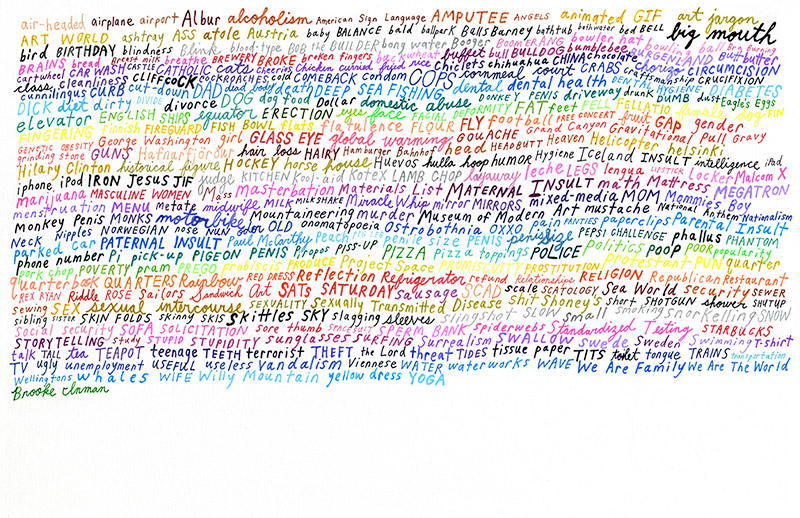 air-headed airplane airport Albur alcoholism American Sign Language AMPUTEE ANGELS animated GIF art jargon
ART WORLD ashtray ASS atole Austria baby BALANCE bald ballpark Balls Barney bathtub bathwater bed BELL big mouth
bird BIRTHDAY blindness Blink blood-type BOB the BUILDER bong water Booger BOOMERANG bowler hat bowling ball Bra Burning
BRAINS bread Breast milk breathe BREWERY BROKE broken fingers buckwheat buffet bull BULLDOG bumblebee BUNGENLAND Butt butter
cartwheel CAR WASH CASTLE CATHOLIC cats cheerios chicken curried fried rice chiclets chihuahua CHINA chocolate Cholego CIRCUMCISION
class cleanliness CLIFF COCK COCKROACHES COCOON COMEBACK condom COPS cornmeal court CRABS Craftsmanship CRUCIFIXION
cunnilingus CURB cut-down DAD dead body DEATH DEEP SEA FISHING dental dental health DENTAL HYGIENE DIABETES
DICK diet dirty DIVIDE divorce DOG dog food Dollar domestic abuse DONKEY PENIS driveway drunk DUMB dust Eagle's Eggs
elevator ENGLISH SHIPS equator ERECTION eyes face FACIAL DEFORMITY FAT feet FELL FELLATIO female dog FUN
FINGERING Finnish FIREGUARD FISH BOWL Flats flatulence FLOUR FLY football FREE CONCERT fruit GAP gender
GENETIC OBESITY George Washington girl GLASS EYE global warming GOUACHE Grand Canyon Gravitational Pull Gravy
grinding stone GUNS Hafnarfjördur hair loss HAIRY Hamburger Bahnhof head HEADBUTT Heaven Helicopter helsinki
Hilary Clinton historical figure HOCKEY horse house Huevos hulla hoop humor Hygiene Iceland INSULT intelligence iPad
iphone iPod IRON JESUS JIF judge KITCHEN Kool-aid Kotex LAMB CHOP layaway leche LEGS lengua LIPSTICK Locker Malcom X
marijuana MASCULINE WOMEN Mass masterbation Materials List MATERNAL INSULT math Mattress MEGATRON
menstruation MENU metate midwife MILK MILKSHAKE Miracle Whip mirror MIRRORS mixed-media MOM Mommies Boy
Monkey Penis MONKS motorbike Mountaineering murder Museum of Modern Art mustache National Anthem Nationalism
Neck Nipples NORWEGIAN nose NUN odor OLD onomatopoeia Ostrobothnia OXXO pain PANTIES paperclips Parental Insult
parked car PATERNAL INSULT Paul McCarthy Peach penile size PENIS penis size PEPSI CHALLENGE phallus PHANTOM
phone number Pi pick-up PIGEON PENIS Propos PISS-UP PIZZA Pizza toppings POLICE politics POOP POOR popularity
pork chop POVERTY pram PREGO probiotic PRODUCE Project Space PROMISCUITY PROSTITUTION protestant PUN quarter
quarterback QUARTERS Rainbow RED DRESS Reflection Refrigerator refund Relationships RELIGION Republican Restaurant
REX RYAN Riddle ROSE Sailors Sandwich Art SATs SATURDAY Sausage SCAD scale SCATOLOGY Sea World security SEWER
sewing SEX sexual intercourse SEXUALITY Sexually Transmitted Disease shit Shoney's short SHOTGUN shower SHUTUP
sibling SIEER SKIN FOLDS skinny SKIS Skittles SKY slagging sleeves slingshot SLOW small smoking snorkelling SNOW
Social security SOFA SOLICITATION sore thumb SPACESUIT SPERM BANK Spiderwebs Standardized Testing STARBUCKS
STORYTELLING study STUPID STUPIDITY sunglasses SURFING Surrealism SWALLOW swede Sweden Swimming T-shirt
talk TALL tea TEAPOT teenage TEETH terrorist THEFT the Lord threat TIDES tissue paper TITS toilet tongue TRAINS transportation
TV ugly unemployment USEFUL useless vandalism Viennese WATER waterworks WAVE We Are Family We Are The World
Wellingtons whales WIFE Willy Mountain yellow dress YOGA
Brooke Inman